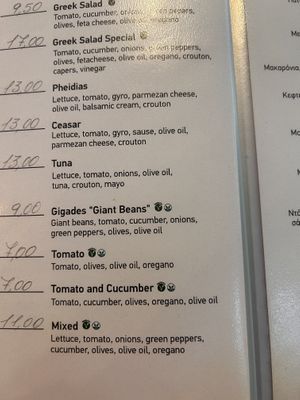 9,50 Greek Salad
Tomato, cucumber, onions, green peppers,
olives, feta cheese, olive oil, oregano
17,00 Greek Salad Special
Tomato, cucumber, onions, green peppers,
olives, fetacheese, olive oil, oregano, crouton,
capers, vinegar
13,00 Pheidias
Lettuce, tomato, gyro, parmezan cheese,
olive oil, balsamic cream, crouton
13,00 Ceasar
Lettuce, tomato, gyro, sause, olive oil,
parmezan cheese, crouton
13,00 Tuna
Lettuce, tomato, onions, olive oil,
tuna, crouton, mayo
9,00 Gigades "Giant Beans"
Giant beans, tomato, cucumber, onions,
green peppers, olives, olive oil
7,00 Tomato
Tomato, olives, olive oil, oregano
7,00 Tomato and Cucumber
Tomato, cucumber, olives, oregano, olive oil
11,00 Mixed
Lettuce, tomato, onions, green peppers,
cucumber, olives, olive oil, oregano
Μακαρόνια